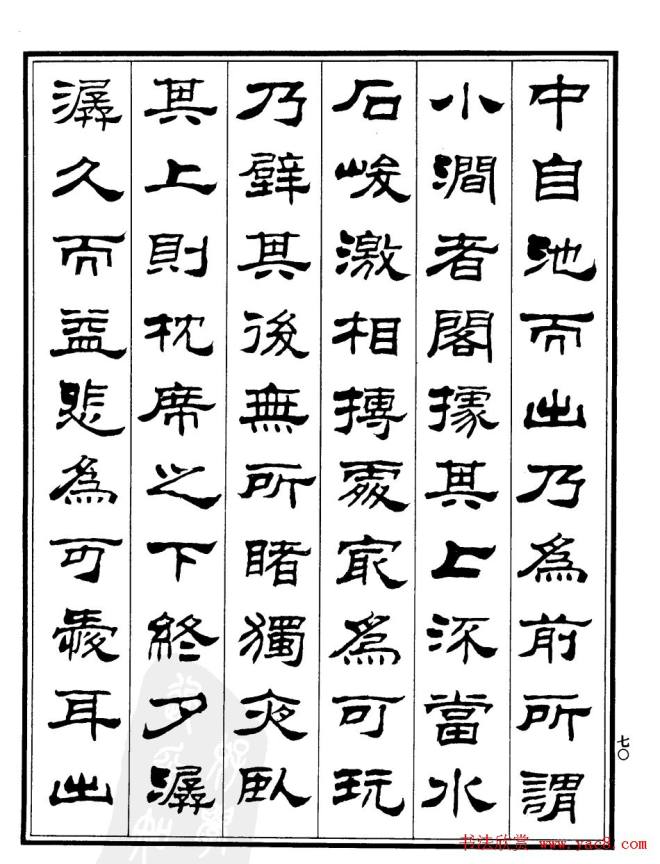 中自池而出乃為前所謂
小澗者閣據其上流當水
石峻激相搏處最為可玩
乃壁其後無所睹獨夜臥
其上則枕席之下終夕潺
潺久而益悲為可愛耳出
七〇
书法欣赏 www.yac8.com